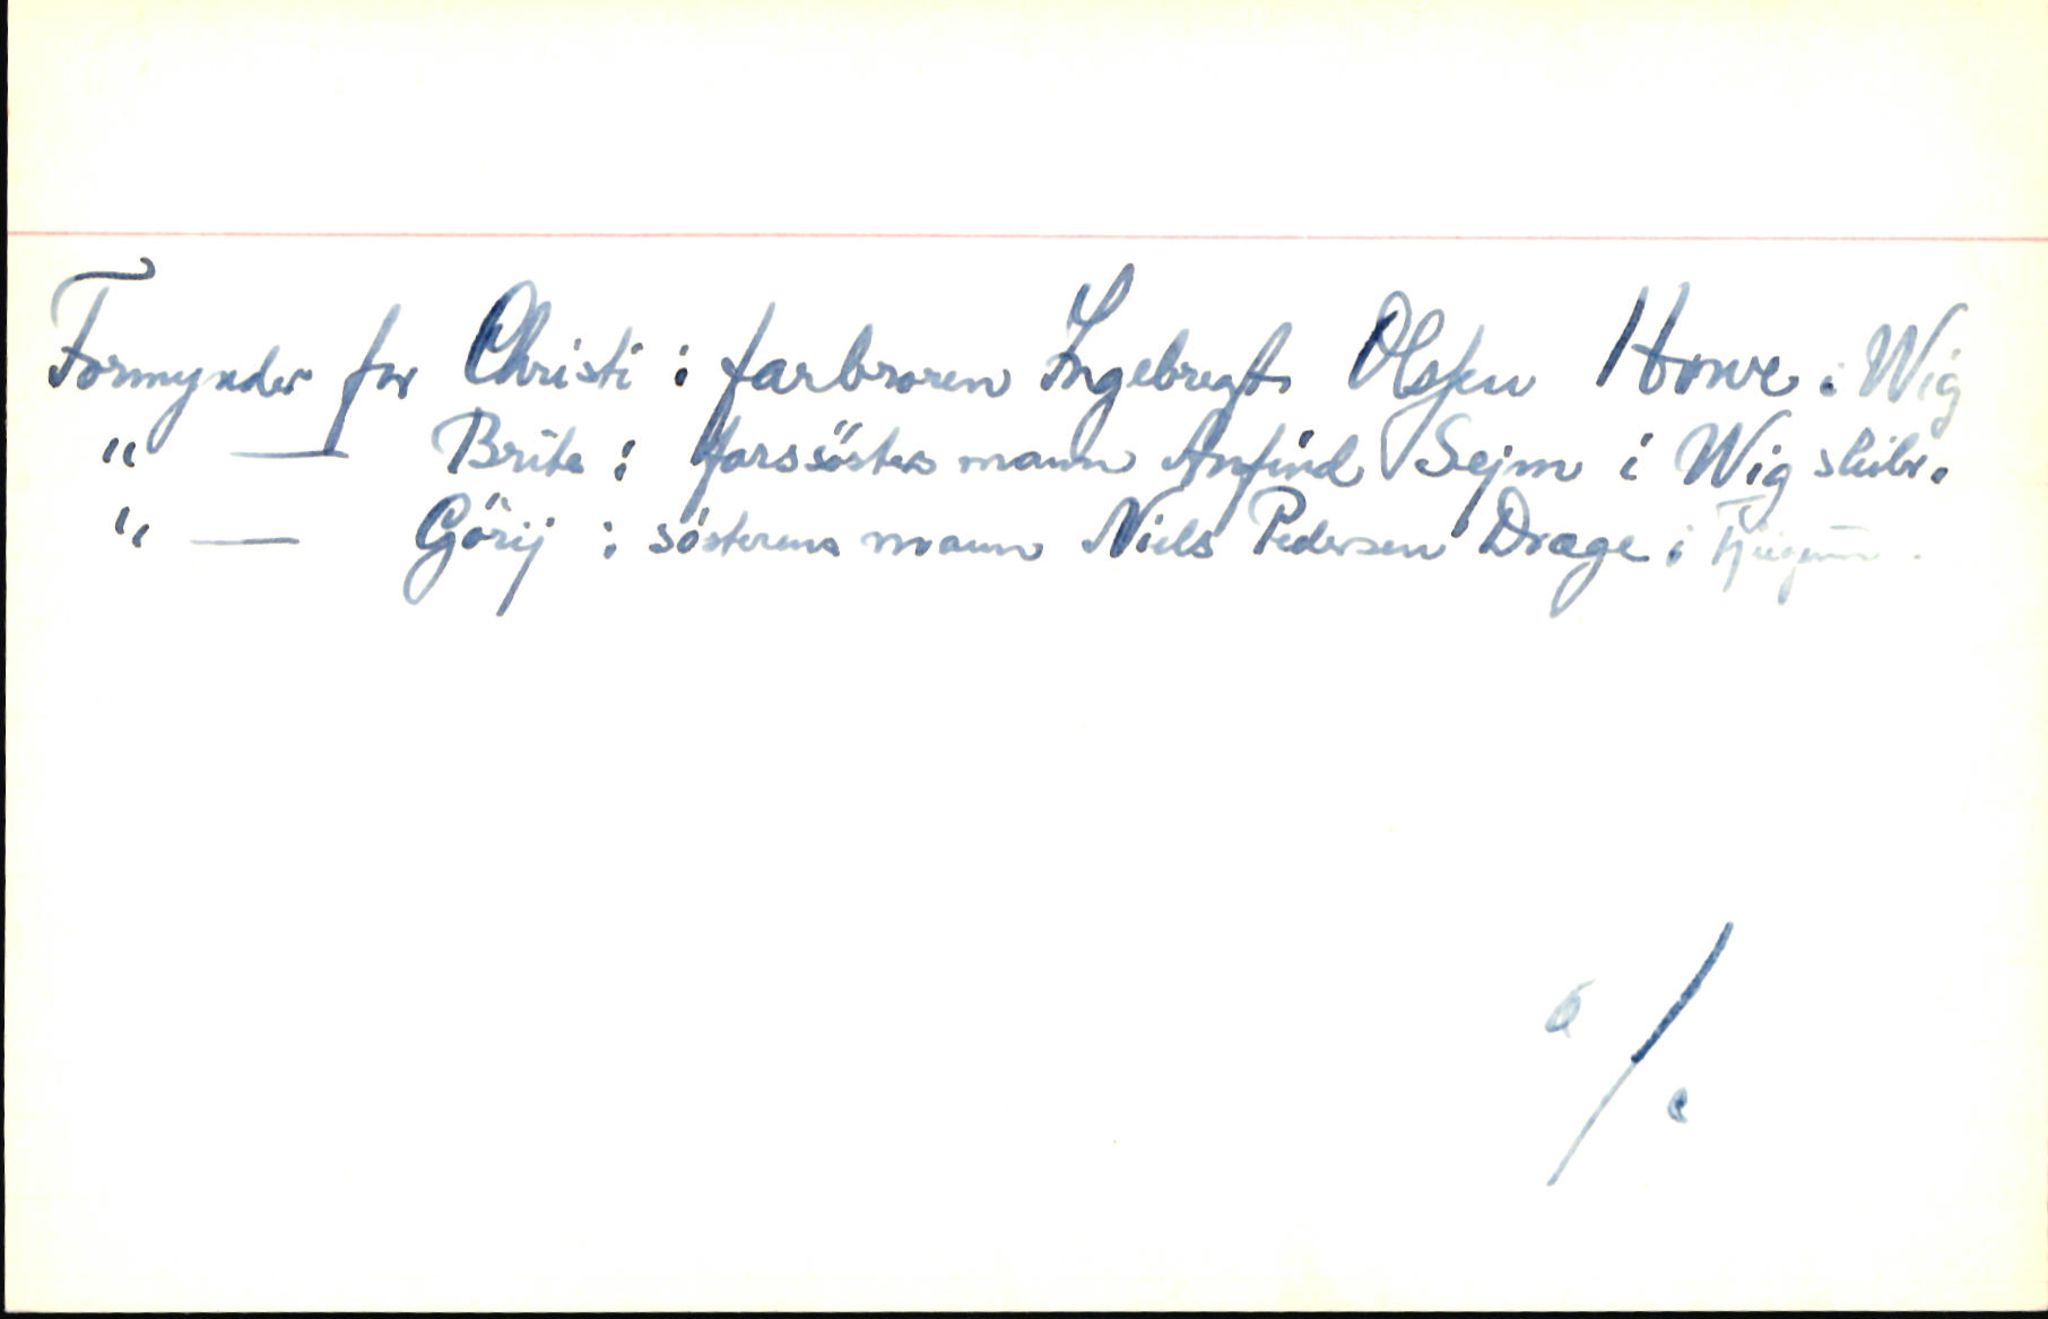 Formynder for Christi : farbroren Ingebregt Olssen Howe i Wig
" — Brite : farssösters mann Anfind Sejm i Wig skibr.
" — Görij : sösterens mann Niels Pedersen Dræge i